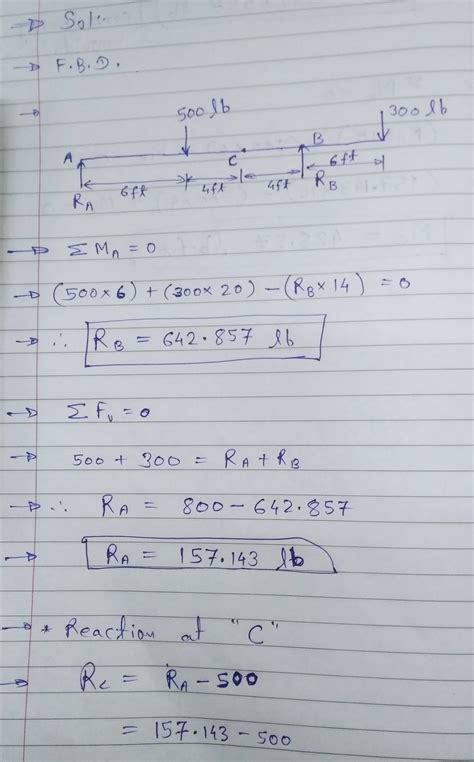 → Sol:-
→ F.B.D.
→
500 lb 300 lb
A C B
6ft 4ft 4ft 6ft
R_A R_B
→ ΣM_A = 0
→ (500×6) + (300×20) − (R_B×14) = 0
→ ∴ R_B = 642.857 lb
→ ΣF_v = 0
→ 500 + 300 = R_A + R_B
→ ∴ R_A = 800 − 642.857
→ R_A = 157.143 lb
→ * Reaction at "C"
→ R_c = R_A − 500
= 157.143 − 500